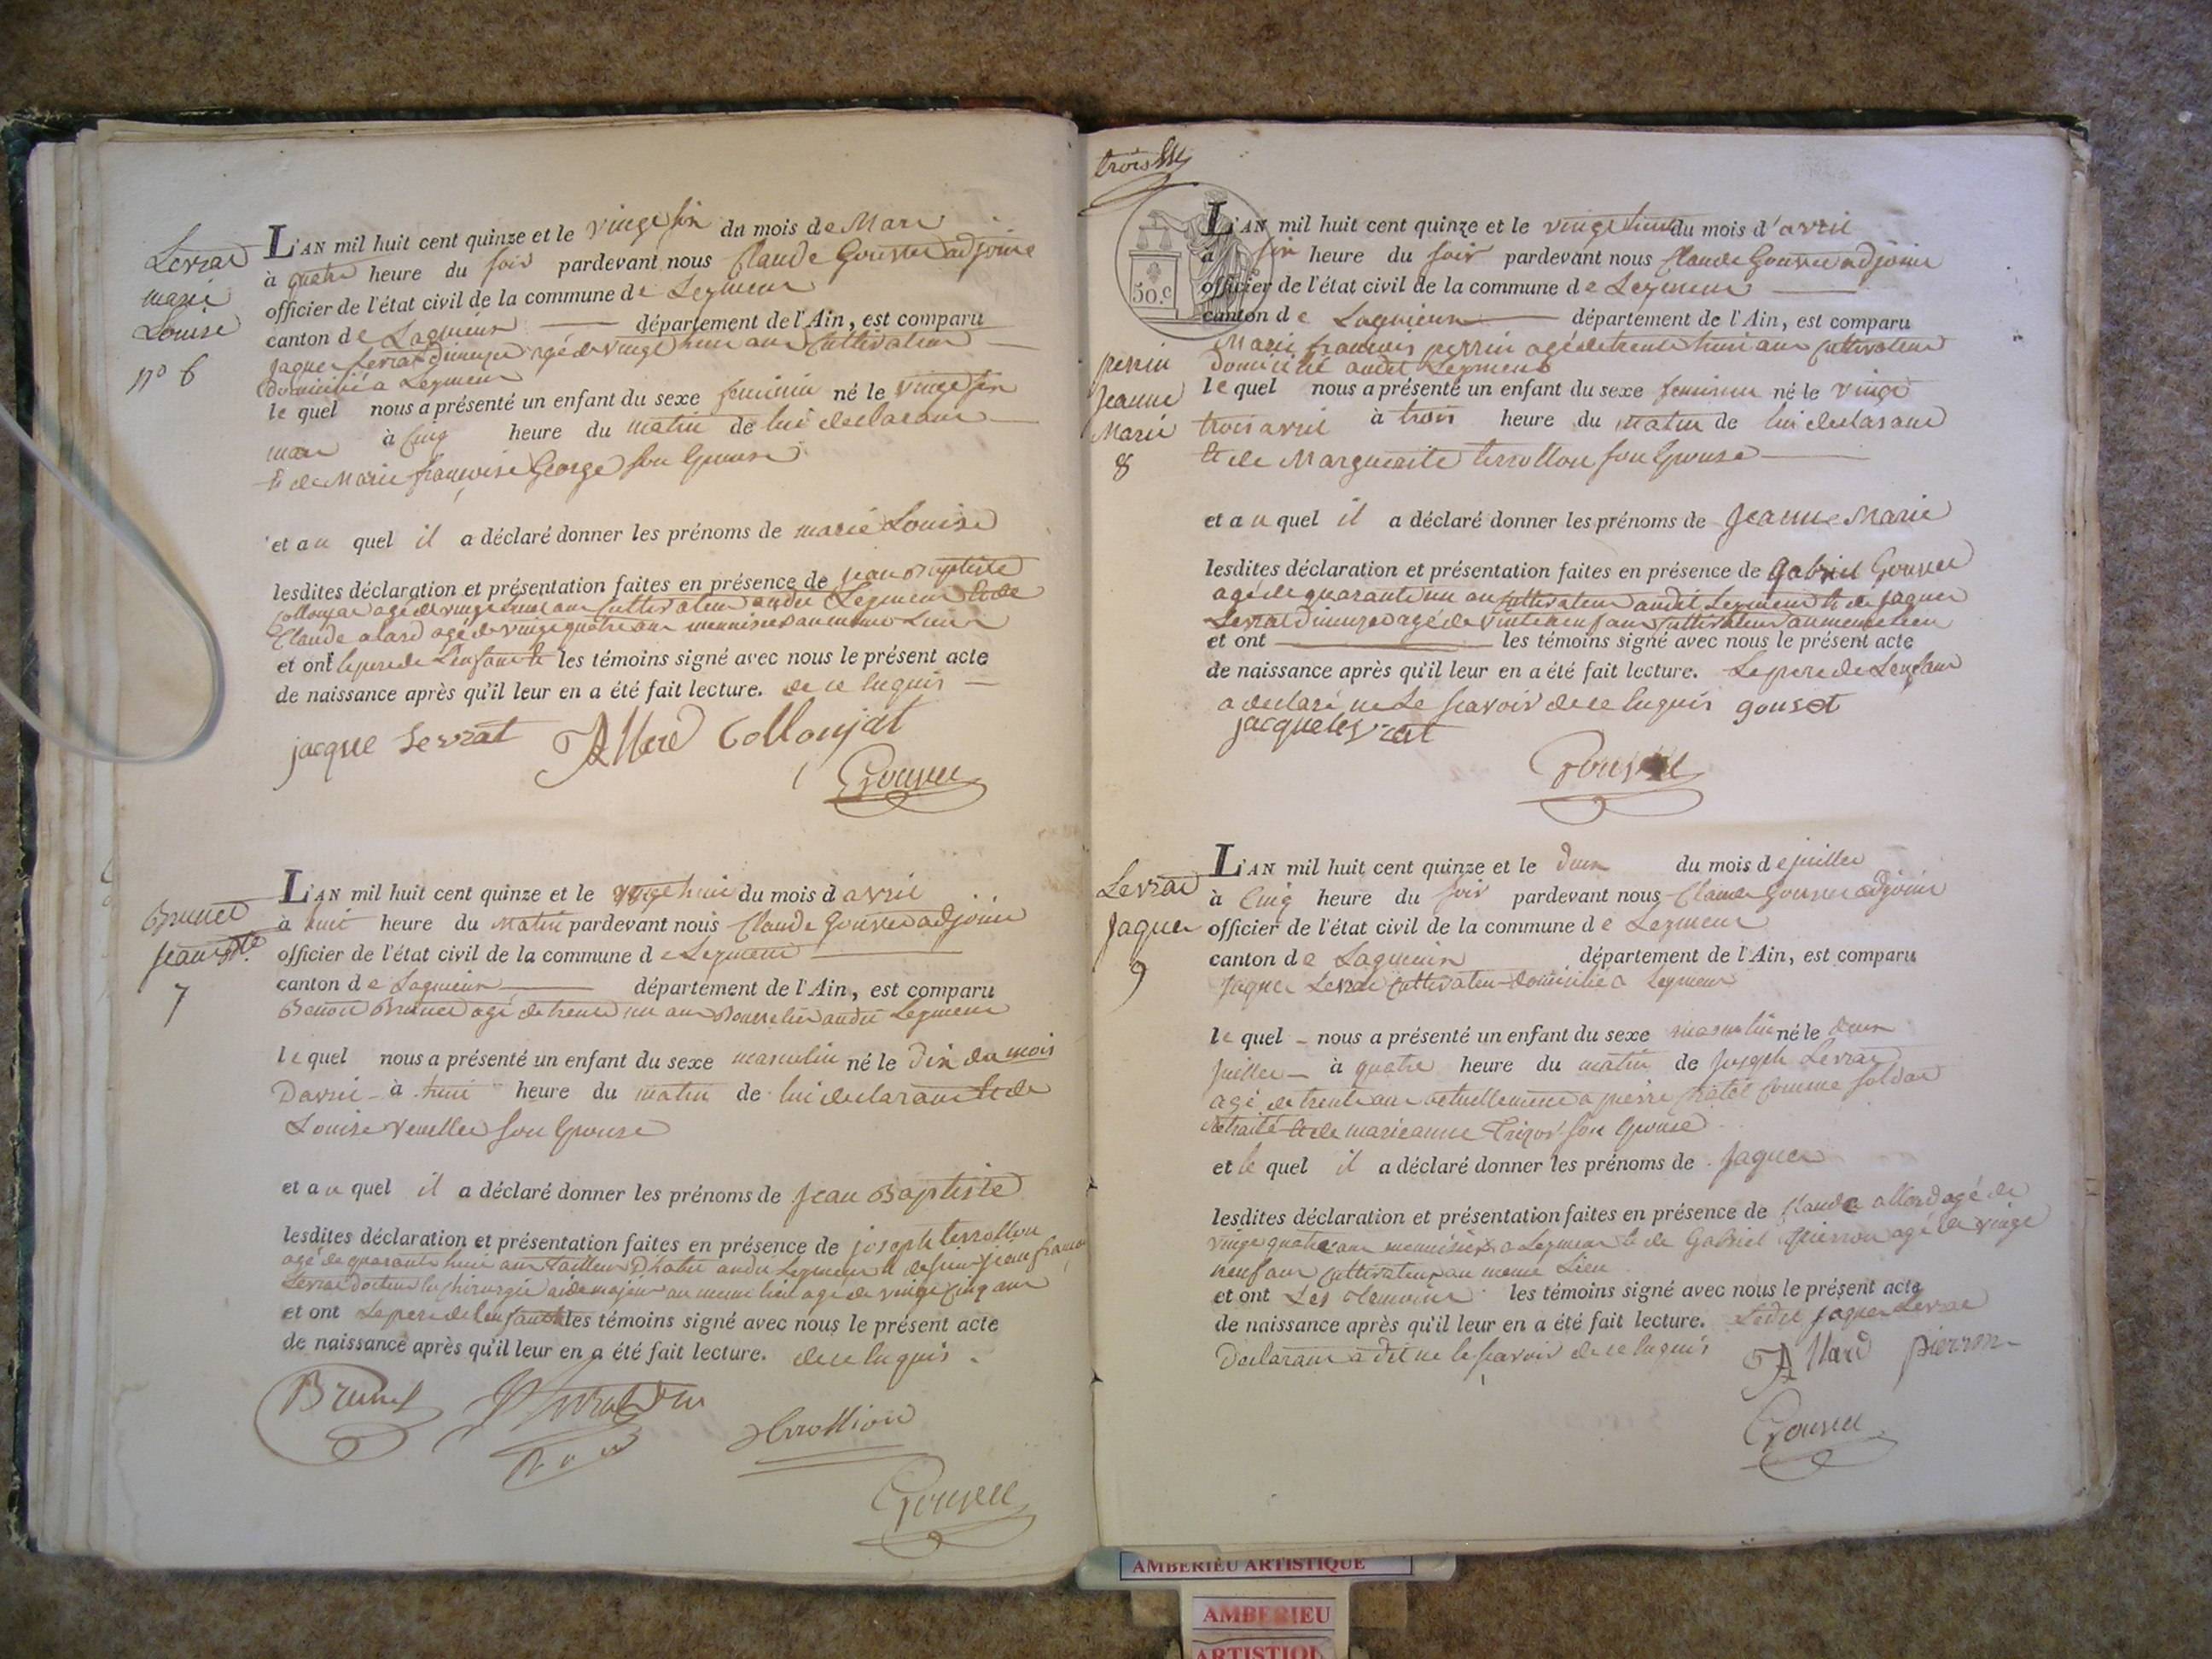 Levrat
marie
Louise
nº 6
L'AN mil huit cent quinze et le vingt six du mois de Mars
à quatre heure du soir pardevant nous Claude Gousset adjoint
officier de l'état civil de la commune de Leyment
canton de Lagnieux département de l'Ain, est comparu
Jaques Levrat agé de vingt huit ans Cultivateur
domicilié a Leyment
le quel nous a présenté un enfant du sexe feminin né le vingt six
mars à Cinq heure du matin de lui declarant
et de Marie françoise George son Epouse
et au quel il a déclaré donner les prénoms de marie Louise
lesdites déclaration et présentation faites en présence de Jean Baptiste
Collonjat agé de vingt ans Cultivateur audit Leyment et de
Claude alard agé de vingt quatre ans menuisier au meme Lieu
et ont le pere de L'enfant et les témoins signé avec nous le présent acte
de naissance après qu'il leur en a été fait lecture. de ce Enquis
jacque Levrat Allard Collonjat
Gousset
Brunet
Jean Bte
7
L'AN mil huit cent quinze et le vingt huit du mois d avril
à huit heure du Matin pardevant nous Claude Gousset adjoint
officier de l'état civil de la commune de Leyment
canton de Lagnieux département de l'Ain, est comparu
Benoit Brunet agé de trente un ans Bourrelier audit Leyment
le quel nous a présenté un enfant du sexe masculin né le Dix du mois
Davril à huit heure du matin de lui declarant et de
Louise son Epouse
et au quel il a déclaré donner les prénoms de Jean Baptiste
lesdites déclaration et présentation faites en présence de joseph terrollion
agé de quarante huit ans Tailleur D'habit audit Leyment et de Jean françois
Levrat docteur en chirurgie aide major au meme lieu agé de vingt Cinq ans
et ont Le pere de lenfant et les témoins signé avec nous le présent acte
de naissance après qu'il leur en a été fait lecture. de ce Enquis
Brunet
terrollion
Gousset
trois
50.c
perrin
Jeanne
Marie
8
L'AN mil huit cent quinze et le vingt trois du mois d'avril
à six heure du soir pardevant nous Claude Gousset adjoint
officier de l'état civil de la commune de Leyment
canton de Lagnieux département de l'Ain, est comparu
Marie françois perrin agé de trente huit ans Cultivateur
domicilié audit Leyment
le quel nous a présenté un enfant du sexe feminin né le vingt
trois avril à trois heure du matin de lui declarant
et de Marguerite terrollion son Epouse
et au quel il a déclaré donner les prénoms de Jeanne Marie
lesdites déclaration et présentation faites en présence de Gabriel Gousset
agé de quarante un an Cultivateur audit Leyment et de Jaques
Levrat agé de vinte neuf ans Cultivateur au meme lieu
et ont les témoins signé avec nous le présent acte
de naissance après qu'il leur en a été fait lecture. Le pere de Lenfant
a declaré ne Le scavoir de ce Enquis gouset
jacque levrat
Gousset
Levrat
Jaques
9
L'AN mil huit cent quinze et le deux du mois de juillet
à Cinq heure du soir pardevant nous Claude Gousset adjoint
officier de l'état civil de la commune de Leyment
canton de Lagnieux département de l'Ain, est comparu
Jaques Levrat Cultivateur domicilié a Leyment
le quel nous a présenté un enfant du sexe masculin né le deux
Juillet à quatre heure du matin de Joseph Levrat
agé de trente ans actuellement a pierre chatel comme soldat
Retraité et de marieanne son Epouse
et le quel il a déclaré donner les prénoms de Jaques
lesdites déclaration et présentation faites en présence de Claude allard agé de
vingt quatre ans menuisier a Leyment et de Gabriel pierron agé de vingt
neuf ans Cultivateur au meme Lieu
et ont Les temoins les témoins signé avec nous le présent acte
de naissance après qu'il leur en a été fait lecture. Ledit Jaques Levrat
Declarant a dit ne le scavoir de ce Enquis Allard pierron
Gousset
AMBERIEU ARTISTIQUE
AMBERIEU
ARTISTIQU